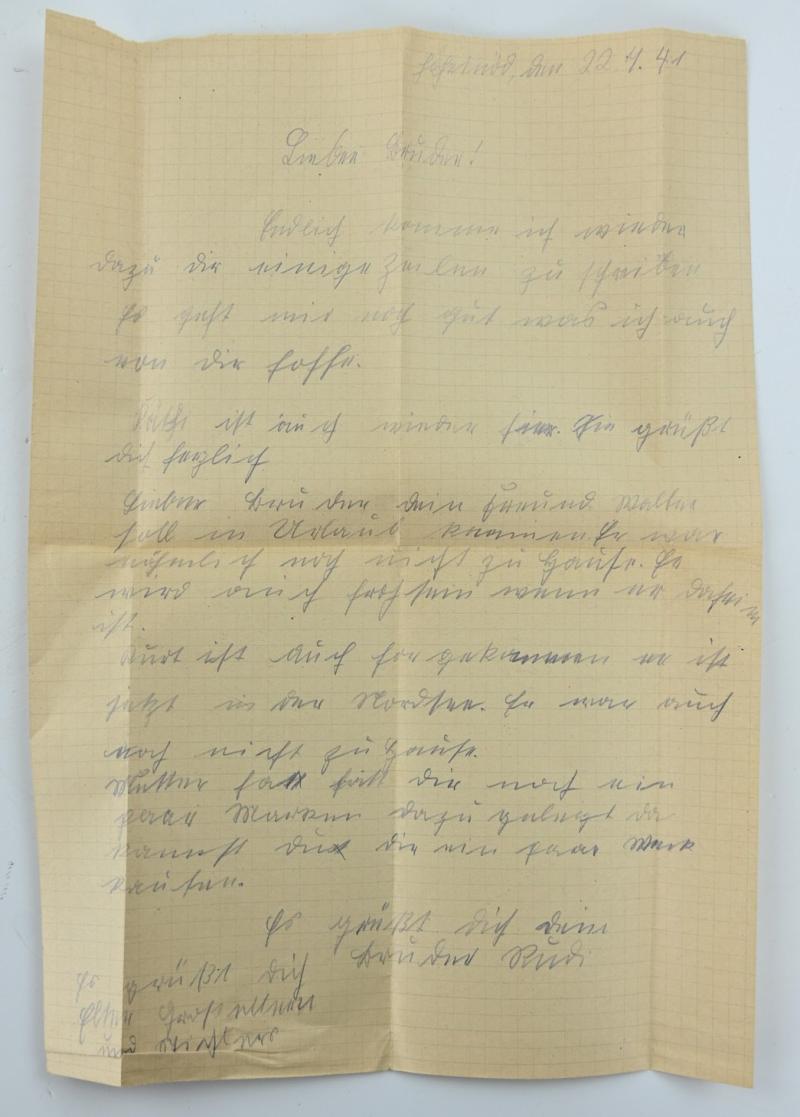 den 22.4.41
Lieber Bruder!
Endlich komme ich wieder
dazu dir einige Zeilen zu schreiben
Es geht mir noch gut was ich auch
von dir hoffe.
ist auch wieder hier. Sie grüßt
dich herzlich
Lieber Bruder dein Freund Walter
soll in Urlaub kommen Er war
nähmlich noch nicht zu Hause. Er
wird auch froh sein wenn er daheim
ist.
Kurt ist auch fortgekommen er ist
jetzt in der Nordsee. Er war auch
noch nicht zu Hause.
Mutter hat dir noch ein
paar Marken dazu gelegt da
kannst du dir ein paar
kaufen.
Es grüßt dich dein
Bruder Rudi
Es grüßt dich
Großeltern
und